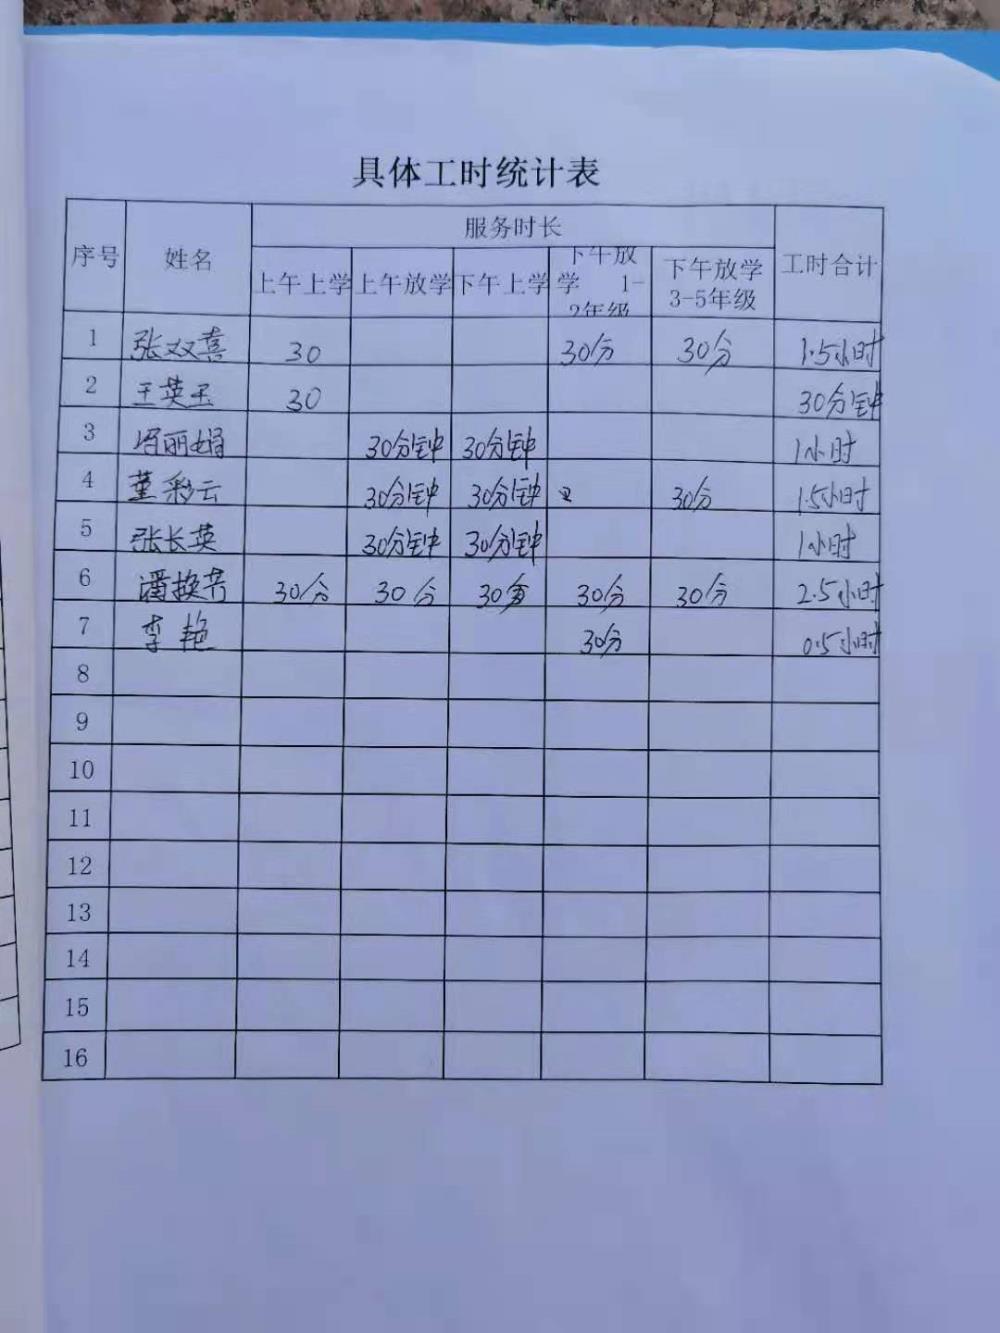 具体工时统计表
序号 姓名 服务时长 工时合计
上午上学 上午放学 下午上学 下午放学 1-2年级 下午放学 3-5年级
1 张双喜 30 30分 30分 1.5小时
2 王英玉 30 30分钟
3 冯丽娟 30分钟 30分钟 1小时
4 董彩云 30分钟 30分钟 30分 1.5小时
5 张长英 30分钟 30分钟 1小时
6 潘换芳 30分 30分 30分 30分 30分 2.5小时
7 李艳 30分 0.5小时
8
9
10
11
12
13
14
15
16